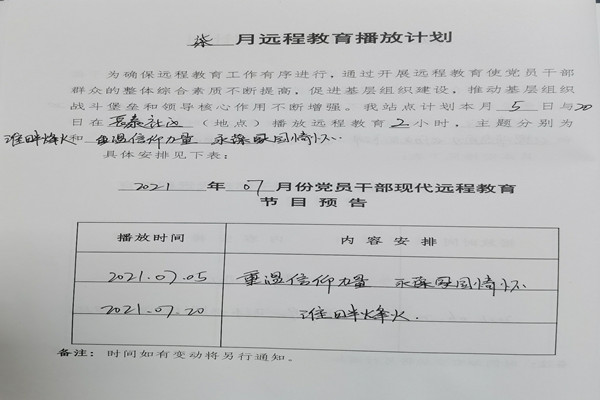 柒 月远程教育播放计划
为确保远程教育工作有序进行,通过开展远程教育使党员干部
群众的整体综合素质不断提高,促进基层组织建设,推动基层组织
战斗堡垒和领导核心作用不断增强。我站点计划本月 5 日与20
日在 长泰社区 (地点)播放远程教育 2 小时,主题分别为
淮畔烽火和 重温信仰力量 永葆家国情怀.
具体安排见下表:
2021 年 07 月份党员干部现代远程教育
节目预告
播放时间 内容安排
2021.07.05 重温信仰力量 永葆家国情怀
2021.07.20 淮畔烽火.
备注: 时间如有变动将另行通知。